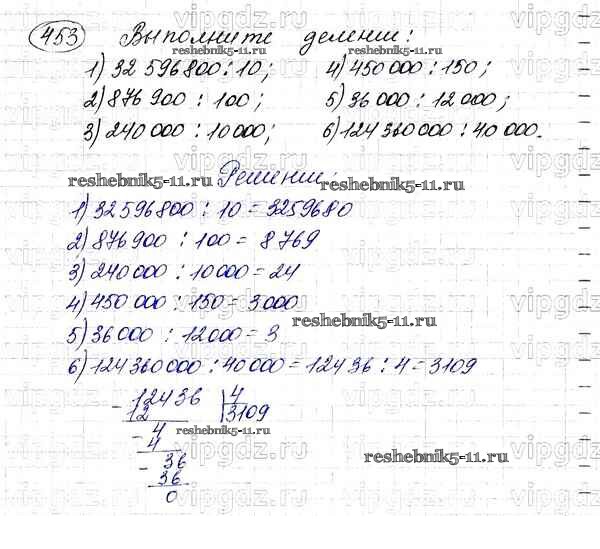 453 Выполните деление:
1) 32 596 800 : 10; 4) 450 000 : 150;
2) 876 900 : 100; 5) 36 000 : 12 000;
3) 240 000 : 10 000; 6) 124 360 000 : 40 000.
Решение:
1) 32 596 800 : 10 = 3259680
2) 876 900 : 100 = 8 769
3) 240 000 : 10 000 = 24
4) 450 000 : 150 = 3 000
5) 36 000 : 12 000 = 3
6) 124 360 000 : 40 000 = 124 36 : 4 = 3109
- 12436 | 4
12 | 3109
- 4
4
- 36
36
0
reshebnik5-11.ru
reshebnik5-11.ru
reshebnik5-11.ru
reshebnik5-11.ru
reshebnik5-11.ru
reshebnik5-11.ru
vipgdz.ru